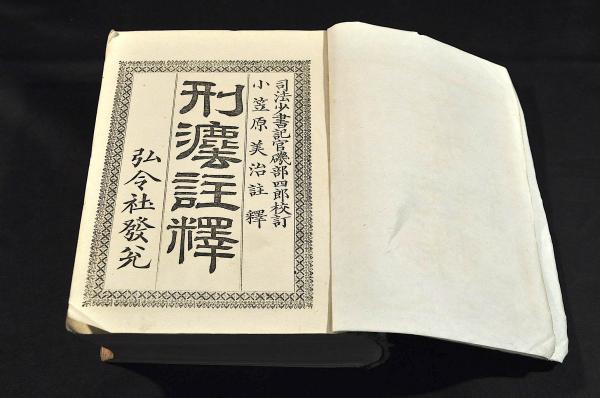 司法少書記官磯部四郎校訂
小笠原美治註釋
刑灋註釋
弘令社發兌